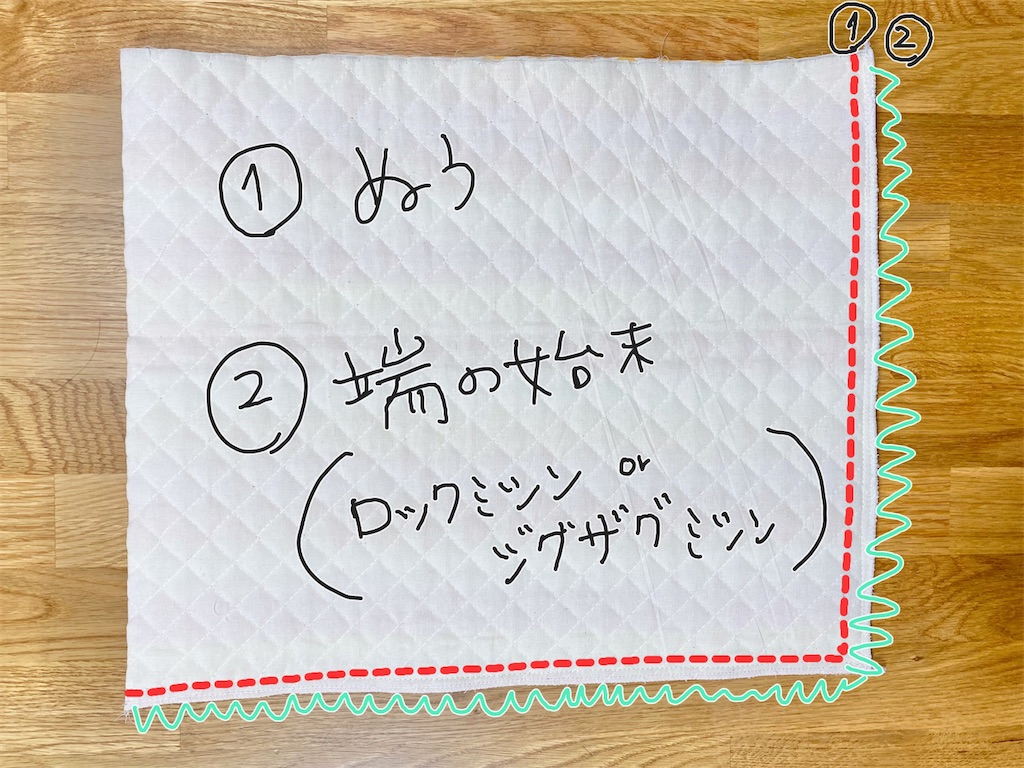 ① ②
① ぬう
② 端の始末
(ロックミシン or
ジグザグミシン)